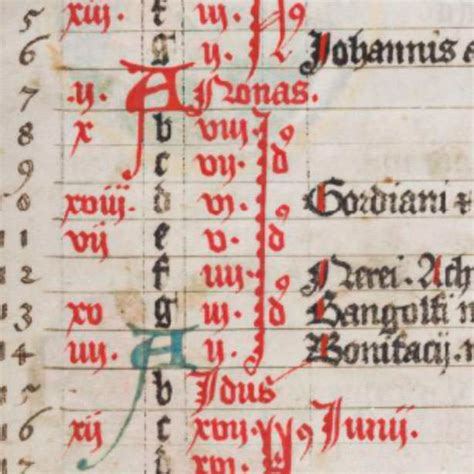 5 xiii. f iij. N9
6 g ij. Johannis a
7 .ij. A Nonas.
8 x b viij I9
9 c vij. d
0 xviij. d vi. 9 Gordiani
11 vij e v. d
12 f iiij. Nerei. Ach
13 xv g iij. d Gangolfi m
14 iiij. A ij. Bonifacij. m
15 b Idus
16 xij c xvij. Junij.
17 d xvi.